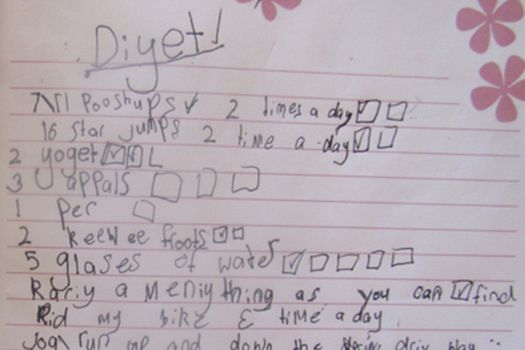 Diyet!
711 Pooshups ✓ 2 times a day ☑ ☐
16 star jumps 2 time a day ☑ ☐
2 yoget ☑ ☑
3 appals ☐ ☐ ☐
1 per ☐
2 keewee froots ☑ ☐
5 glases of water ☑ ☐ ☐ ☐ ☐
Rariy a meniy thing as you can ☑ find
Rid my bike & time a day
Jog run up and down the driv